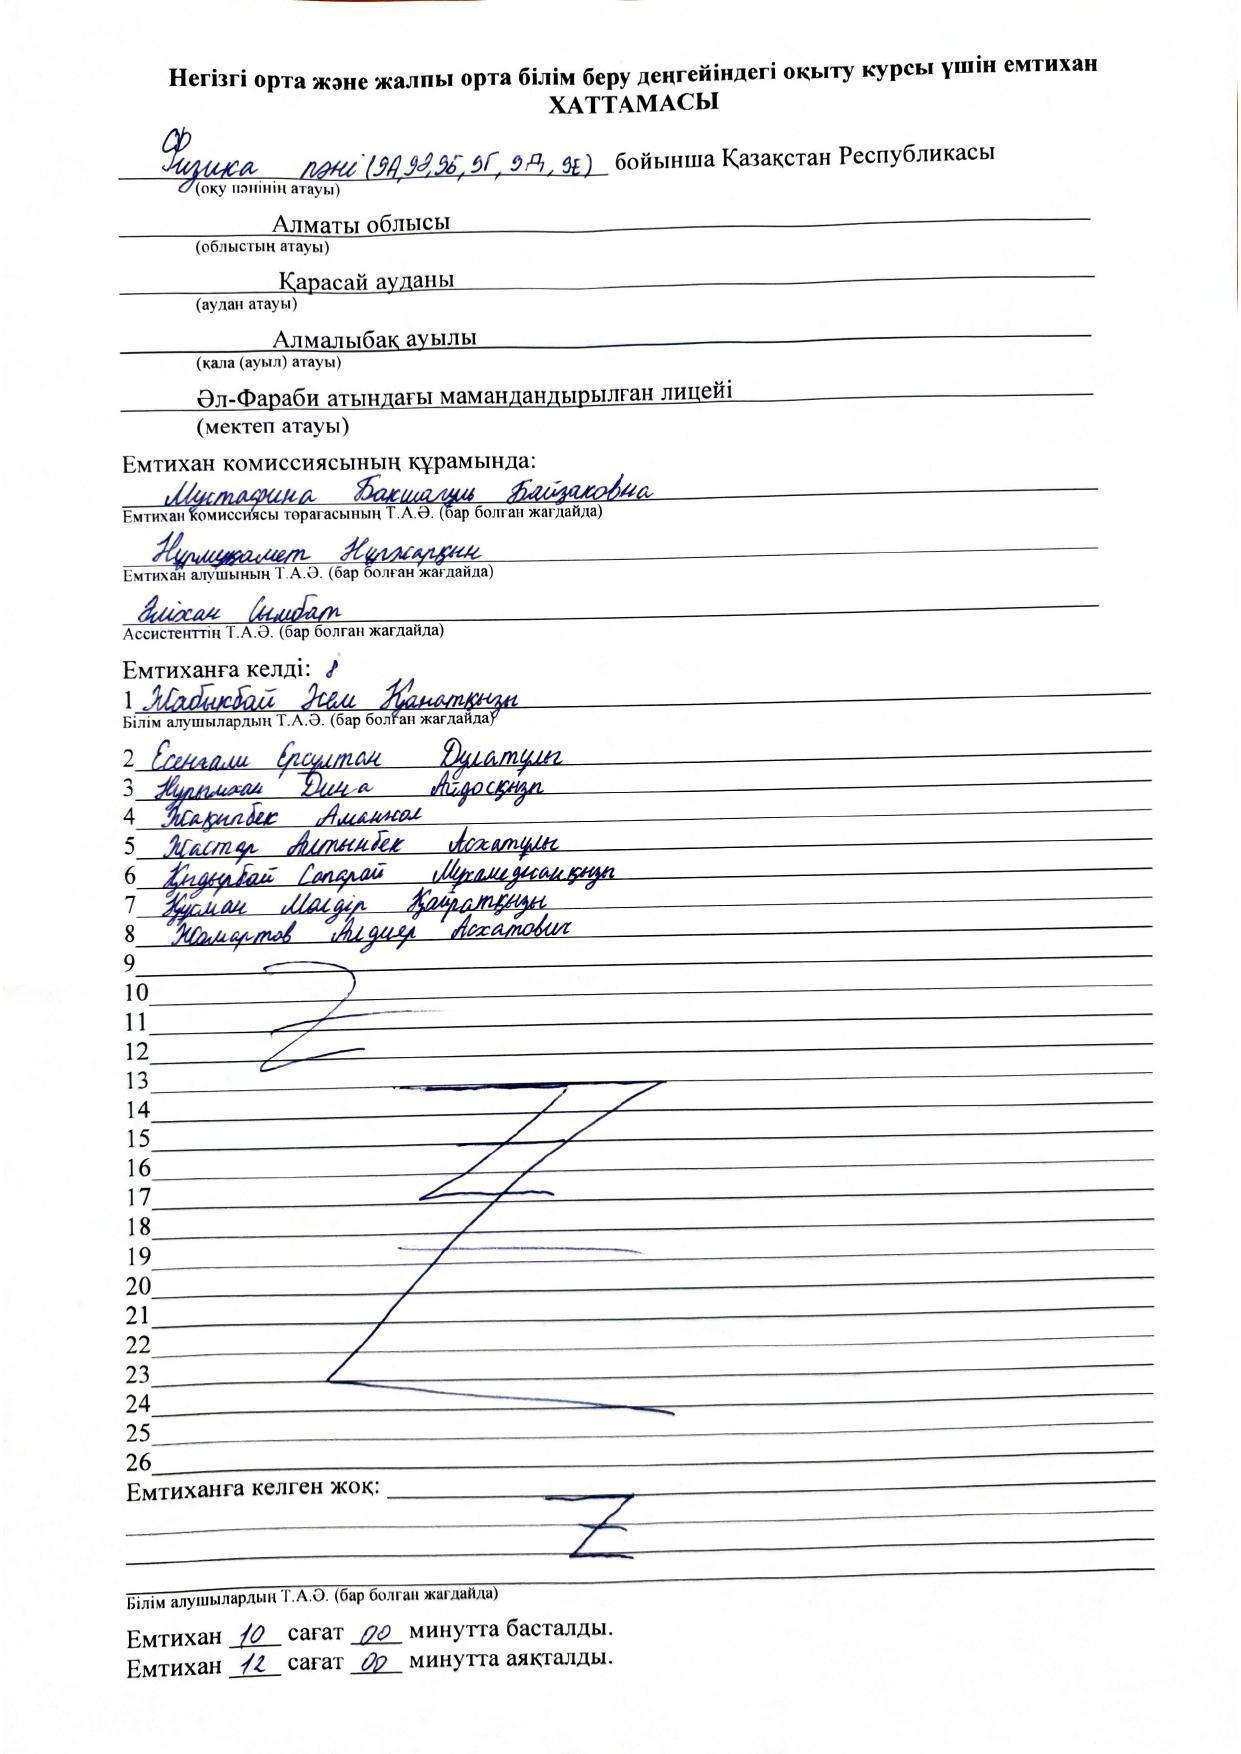 Негізгі орта және жалпы орта білім беру деңгейіндегі оқыту курсы үшін емтихан
ХАТТАМАСЫ
Физика пәні (9А, 9Ә, 9Б, 9Г, 9Д, 9Е) бойынша Қазақстан Республикасы
(оқу пәнінің атауы)
Алматы облысы
(облыстың атауы)
Қарасай ауданы
(аудан атауы)
Алмалыбақ ауылы
(қала (ауыл) атауы)
Әл-Фараби атындағы мамандандырылған лицейі
(мектеп атауы)
Емтихан комиссиясының құрамында:
Мустафина Бакшагуль Байзаковна
Емтихан комиссиясы төрағасының Т.А.Ә. (бар болған жағдайда)
Нұрмұхамет Нұржарқын
Емтихан алушының Т.А.Ә. (бар болған жағдайда)
Әліхан Сымбат
Ассистенттің Т.А.Ә. (бар болған жағдайда)
Емтиханға келді: 8
1 Жабықбай Әсем Қанатқызы
Білім алушылардың Т.А.Ә. (бар болған жағдайда)
2 Есенғали Ерсұлтан Дулатұлы
3 Нұрымхан Дина Айдосқызы
4 Жақыпбек Аманжол
5 Жастар Алтынбек Асхатұлы
6 Қыдырбай Сапарай Мұхамеджанқызы
7 Құсман Мөлдір Қайратқызы
8 Жомартов Алдияр Асхатович
9
10
11
12
13
14
15
16
17
18
19
20
21
22
23
24
25
26
Емтиханға келген жоқ:
Z
Білім алушылардың Т.А.Ә. (бар болған жағдайда)
Емтихан 10 сағат 00 минутта басталды.
Емтихан 12 сағат 00 минутта аяқталды.